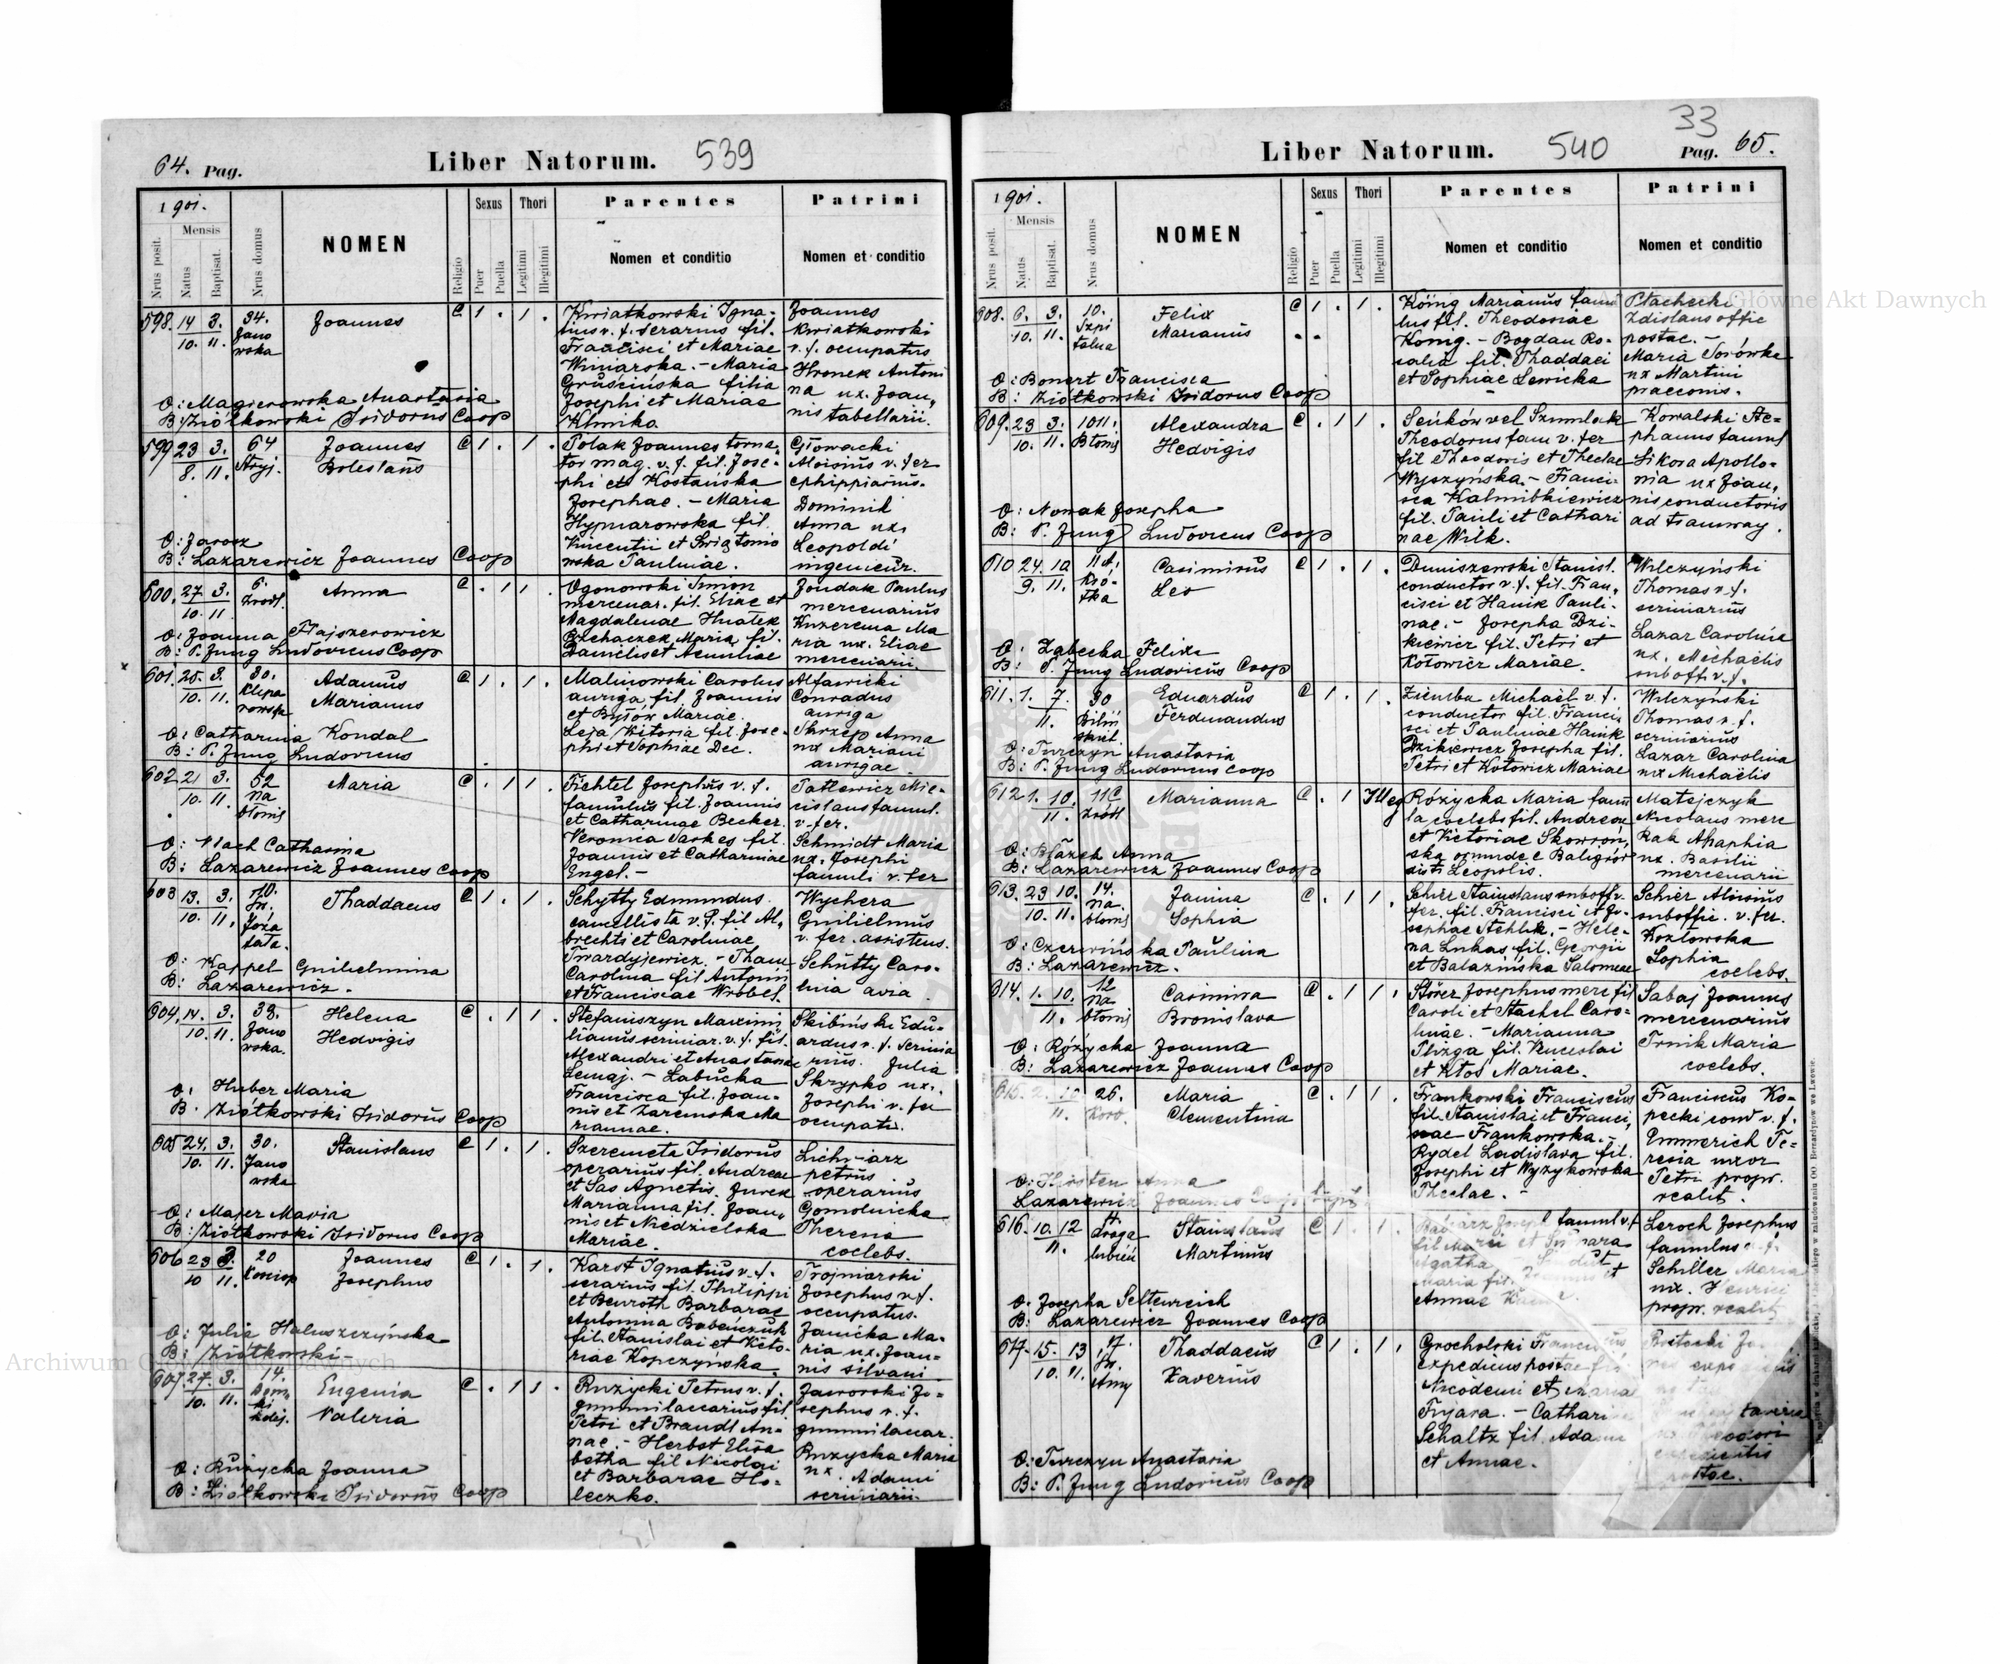 64. Pag.
Liber Natorum.
539
1901.
Nrus posit.
Mensis
Natus
Baptisat.
Nrus domus
NOMEN
Religio
Sexus
Puer
Puella
Thori
Legitimi
Illegitimi
Parentes
Nomen et conditio
Patrini
Nomen et conditio
598. 14/10. 3. 11. 34. Janowska
Joannes
C 1 . 1 .
Kwiatkowski Igna-
tius v. f. serarius fil.
Francisci et Mariae
Winiarska. - Maria
Gruścińska filia
Josephi et Mariae
Klimko.
Joannes
Kwiatkowski
v. f. occupatus
Hronek Antoni
na ux. Joan,
nis tabellarii.
O: Magierowska Anastasia
B: Ziółkowski Isidorus Coop
599 23/8. 3. 11. 64 Stryj.
Joannes
Boleslaus
C 1 . 1 .
Polak Joannes torna,
tor mag. v. f. fil. Jose-
phi et Kostańska
Josephae. - Maria
Hypnarowska fil.
Vincentii et Swiątonio
wska Paulinae.
Głowacki
Aloisius v. fer
ephippiarius.
Dominik
Anna ux.
Leopoldi
ingenieur.
O: Jarosz
B: Lazarewicz Joannes Coop
600. 27/10. 3. 11. 6. Źródl.
Anna
C . 1 1 .
Ogonowski Simon
mercenar. fil. Eliae et
Magdalenae Hnatek
Bzchaczek Maria fil.
Danielis et Aemiliae
Jondak Paulus
mercenarius
Kuzerema Ma
ria ux. Eliae
mercenarii.
O: Joanna Flajszerowicz
B: P. Jung Ludovicus Coop
601. 25./10. 3. 11. 80. Kleparowska
Adamus
Marianus
C 1 . 1 .
Malinowski Carolus
auriga, fil. Joannis
et Bysów Mariae.
Leja Victoria fil. Jose-
phi et Sophiae Dec.
Alfawicki
Conradus
auriga
Skrzep Anna
ux Mariani
aurigae
O: Catharina Kondal
B: P. Jung Ludovicus
602 21/10. 3. 11. 52 na błonij
Maria
C . 1 1 .
Fichtel Josephus v. f.
famulus fil. Joannis
et Catharinae Becker.
Veronica Sarkes fil.
Joannis et Catharinae
Engel. -
Patlewicz Mie-
cislaus famul.
v. fer.
Schmidt Maria
ux. Josephi
famuli v. fer
O: Mach Catharina
B: Lazarewicz Joannes Coop
603 13./10. 3. 11. 10. Św. Józafata.
Thaddaeus
C 1 . 1 .
Schytty Edmundus
cancellista v. f. fil Al,
brechti et Carolinae
Twardyjewicz. - Thau
Carolina fil Antonii
et Franciscae Wróbel.
Wychera
Guilielmus
v. fer. assistens.
Schütty Caro-
lina avia.
O: Kappel Guilielmina
B: Lazarewicz.
604. 14./10. 3. 11. 38. Janowska.
Helena
Hedvigis
C . 1 1 .
Stefaniszyn Maximi
lianus scriniar. v. f. fil.
Alexandri et Anastasiae
Lemaj. - Łabucka
Francisca fil. Joan-
nis et Zaremska Ma
riannae.
Skibiński Edu-
ardus v. f. scrinia
rius. Julia
Skrypko ux.
Josephi v. fer
occupati.
O: Huber Maria
B: Ziółkowski Isidorus Coop
605 24./10. 3. 11. 30. Janowska
Stanislaus
C 1 . 1 .
Szeremeta Isidorus
operarius fil. Andreae
et Sas Agnetis. Jurek
Marianna fil. Joan,
nis et Niedzielska
Mariae.
Lichwiarz
petrus
operarius
Gomolnicka
Theresia
coelebs.
O: Majer Maria
B: Ziółkowski Isidorus Coop
606 23/10 3. 11. 20
Joannes
Josephus
C 1 . 1 .
Karst Ignatius v. f.
serarius fil. Philippi
et Beuroth Barbarae
Antonina Babeńczuk
fil. Stanislai et Victo-
riae Kopczyńska.
Trojniarski
Josephus v. f.
occupatus.
Janicka Ma-
ria ux. Joan-
nis silvani
O: Julia Haluszczyńska
B: Ziółkowski -
607 27./10. 3. 11. 14.
Eugenia
Valeria
C . 1 1 .
Ruzycki Petrus v. f.
gummilacarius fil
Petri et Brandt An-
nae. - Herbst Elisa
betha fil Nicolai
et Barbarae Ho-
leczko.
Jaworski Jo-
sephus v. f.
gummilacar.
Ruzycka Maria
ux. Adami
scriniarii.
O: Ruzycka Joanna
B: Ziółkowski Isidorus Coop
33
Liber Natorum.
540
Pag. 65.
1901.
Nrus posit.
Mensis
Natus
Baptisat.
Nrus domus
NOMEN
Religio
Sexus
Puer
Puella
Thori
Legitimi
Illegitimi
Parentes
Nomen et conditio
Patrini
Nomen et conditio
608. 6./10. 3. 11. 10. Szpitalna
Felix
Marianus
C 1 . 1 .
König Marianus famu
lus fil. Theodosiae
König. - Bogdan Ro-
salia fil. Thaddaei
et Sophiae Lewicka
Płachecki
Zdislaus offic
postae. -
Maria Sorówka
ux Martini
praeconis.
O: Bonert Francisca
B: Ziółkowski Isidorus Coop
609. 23/10. 3. 11. 1011. Błonij
Alexandra
Hedvigis
C . 1 1 .
Seńków vel Szumlak
Theodorus fam v. fer
fil Theodoris et Theclae
Wyszyńska. - Franci-
sca Kalmibkiewicz
fil. Pauli et Cathari
nae Wilk.
Kowalski Ste-
phanus famul
Sikora Apollo-
nia ux Joan,
nis conductoris
ad tramway.
O: Nowak Josepha
B: P. Jung Ludovicus Coop
610 24./9. 10 11. 11d. Krótka
Casimirus
Leo
C 1 . 1 .
Duniszewski Stanisl.
conductor v. f. fil. Fran,
cisci et Hauk Pauli-
nae. - Josepha Dzi-
kiewicz fil. Petri et
Kotowicz Mariae.
Wilczyński
Thomas v. f.
scriniarius
Lazar Carolina
ux. Michaelis
suboff. v. f.
O: Zabecka Felixa
B: P. Jung Ludovicus Coop
611. 1./11. 7. 30
Eduardus
Ferdinandus
C 1 . 1 .
Ziemba Michaël v. f.
conductor fil. Franci,
sci et Paulinae Hauk
Dzikiewicz Josepha fil.
Petri et Kotowicz Mariae
Wilczyński
Thomas v. f.
scriniarius
Lazar Carolina
ux Michaëlis
O: Turczyn Anastasia
B: P. Jung Ludovicus Coop
612 1./11. 10. 11C Źródl
Marianna
C . 1 Illeg
Różycka Maria famu
la coelebs fil. Andreae
et Victoriae Skowroń,
ska oriunde e Baligród
sisti Leopolis.
Matejczyk
Nicolaus merc
Rak Aphaphia
ux. Basilii
mercenarii
O: Blazek Anna
B: Lazarewicz Joannes Coop
613. 23/10. 10. 11. 14. na błonij
Janina
Sophia
C . 1 1 .
Schier Stanislaus suboff. v.
fer. fil. Francisci et Jo-
sephae Stehlik. - Hele-
na Lukas fil. Georgii
et Balazińska Salomeae
Schier Aloisius
suboffic. v. fer.
Kozłowska
Sophia
coelebs.
O: Czerwińska Paulina
B: Lazarewicz.
614. 1./11. 10. 12 na błonij
Casimira
Bronislava
C . 1 1 .
Störer Josephus merc fil
Caroli et Stachel Caro-
linae. - Marianna
Plizga fil. Venceslai
et Ktos Mariae.
Sabaj Joannes
mercenarius
Trnik Maria
coelebs.
O: Różycka Joanna
B: Lazarewicz Joannes Coop
615. 2./11. 10. 26. Koro.
Maria
Clementina
C . 1 1 .
Frankowski Franciscus
fil. Stanislai et Franci,
scae Frankowska. -
Rydel Ladislava fil.
Josephi et Wyzykowska
Theclae. -
Franciscus Ko-
pecki cond v. f.
Emmerich Te-
resia uxor
Petri propr.
realit.
Anna
Lazarewicz Joannes Coop
616. 10./11. 12 4 droga lubień
Stanislaus
Martinus
C 1 . 1 .
Joseph famul v. f
fil Marci et
Agatha
Maria fil. Joannis et
Annae
Leroch Josephus
famulus v. f.
Schiller Maria
ux. Henrici
propr. realit
O: Josepha Seltenreich
B: Lazarewicz Joannes Coop
617. 15./10. 13 11. 17. Św. Anny
Thaddaeus
Xaverius
C 1 . 1 .
Grocholski Franciscus
expedicus postae fil
Nicodemi et Maria
Fujara. - Cathari
Schaltz fil. Adami
et Annae.
postae.
O: Turczyn Anastasia
B: P. Jung Ludovicus Coop
Archiwum Główne Akt Dawnych
Archiwum Główne Akt Dawnych